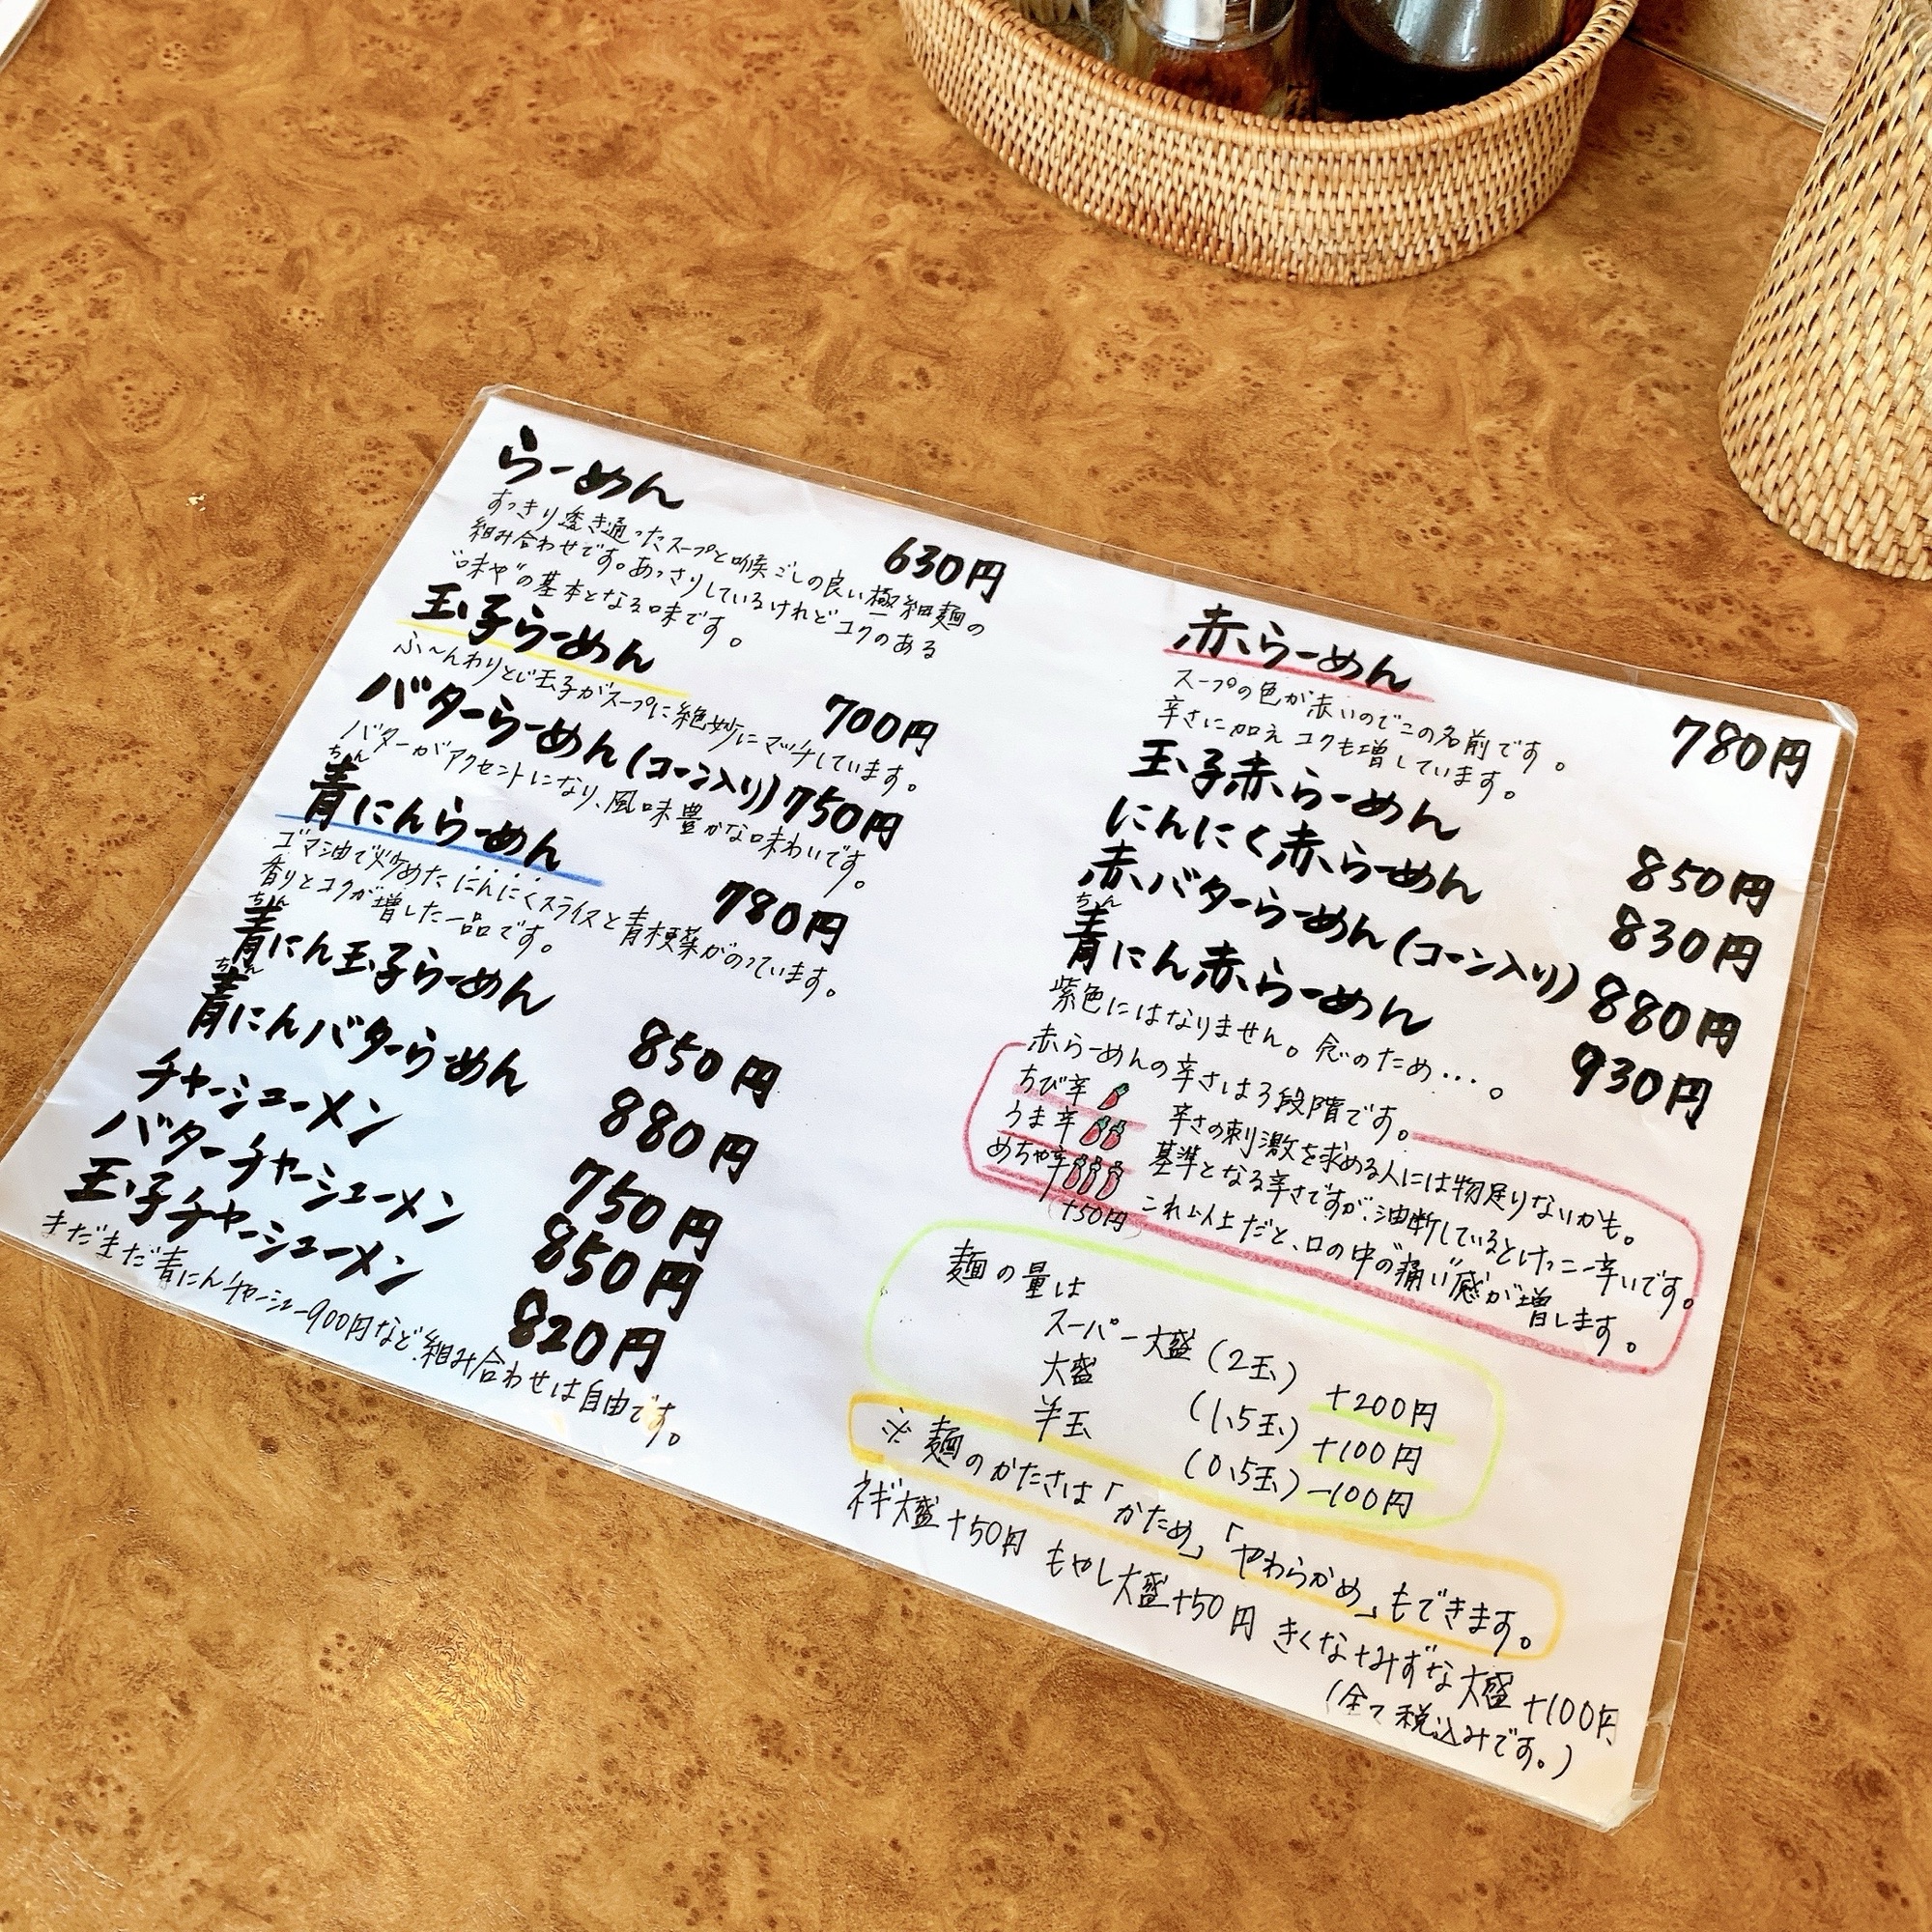 らーめん
630円
すっきり透き通ったスープと喉ごしの良い極細麺の
組み合わせです。あっさりしているけれどコクのある
"味や"の基本となる味です。
玉子らーめん
700円
ふ〜んわりとじ玉子がスープに絶妙にマッチしています。
バターらーめん(コーン入り)750円
バターがアクセントになり、風味豊かな味わいです。
ちん
青にんらーめん
780円
ゴマ油で炒めたにんにくスライスと青梗菜がのっています。
香りとコクが増した一品です。
ちん
青にん玉子らーめん
850円
ちん
青にんバターらーめん
880円
チャーシューメン
750円
バターチャーシューメン
850円
玉子チャーシューメン
820円
まだまだ青にんチャーシュー900円など、組み合わせは自由です。
赤らーめん
780円
スープの色が赤いのでこの名前です。
辛さに加え コクも増しています。
玉子赤らーめん
850円
にんにく赤らーめん
830円
赤バターらーめん(コーン入り)880円
ちん
青にん赤らーめん
930円
紫色にはなりません。念のため…。
赤らーめんの辛さは3段階です。
ちび辛 辛さの刺激を求める人には物足りないかも。
うま辛 基準となる辛さですが、油断しているとけっこー辛いです。
めちゃ辛 これ以上だと、口の中の"痛い"感が増します。
+50円
麺の量は
スーパー大盛 (2玉) +200円
大盛 (1、5玉) +100円
半玉 (0、5玉) -100円
※ 麺のかたさは「かため」「やわらかめ」もできます。
ネギ大盛+50円 もやし大盛+50円 きくな+みずな大盛+100円
(全て税込みです。)